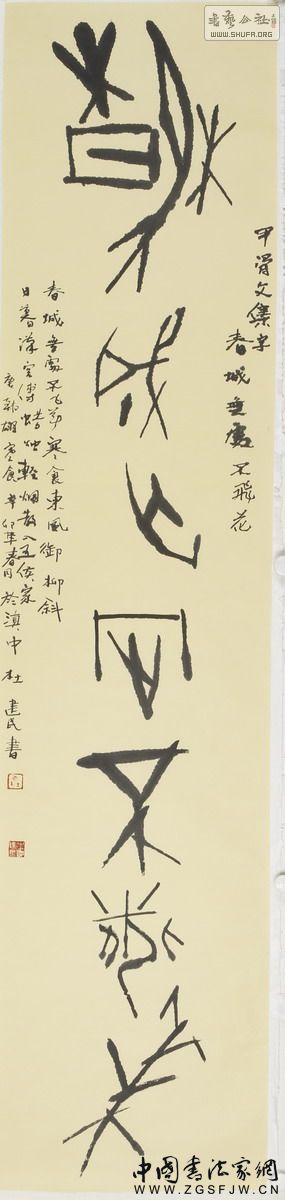 書藝公社
WWW.SHUFA.ORG
甲骨文集字
春城無處不飛花
春城無處不飛花
春城無處不飞花寒食東風御柳斜
日暮漢宮傳蜡烛輕烟散入五侯家
唐韓翃寒食辛卯年春月於滇中杜建民書
中國書法家網
WWW.ZGSFJW.CN